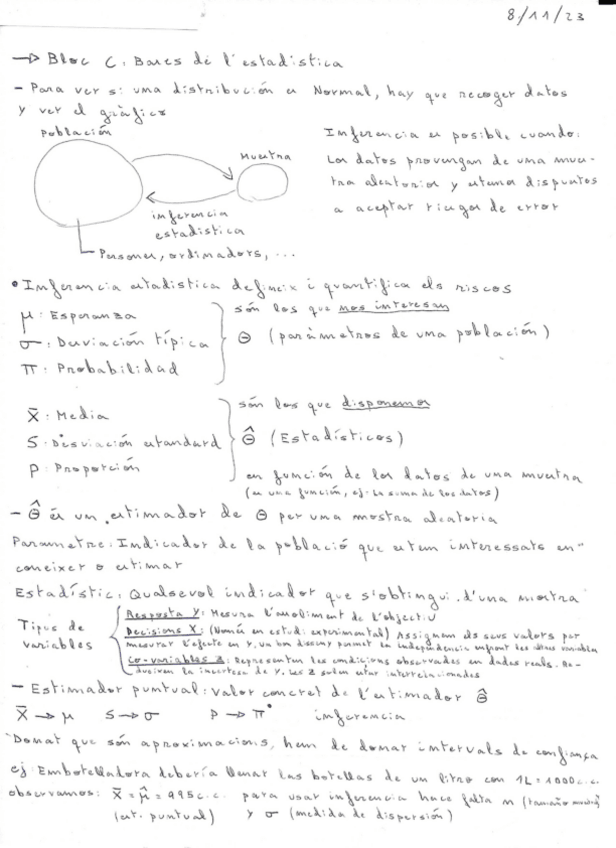 8/11/23
→ Bloc C. Bases de l'estadística
- Para ver si una distribución es Normal, hay que recoger datos
y ver el gràfico
Población
Muestra
inferencia
estadística
Personas, ordinadors, ...
Inferencia es posible cuando:
Los datos provengan de una mues-
tra aleatoria y
a aceptar riesgos de error
• Inferencia estadística defineix i quantifica els riscos
μ: Esperanza
σ: Desviación típica
π: Probabilidad
són los que nos interesan
Θ (parámetros de una población)
x̄: Media
S: Desviación estandard
P: Proporción
són los que disponemos
Θ̂ (Estadísticos)
en función de los datos de una muestra
(es una función, ej: la suma de los datos)
- Θ̂ és un estimador de Θ per una mostra aleatoria
Parametre: Indicador de la població que estem interessats en
coneixer o estimar
Estadístic: Qualsevol indicador que s'obtingui d'una mostra
Tipos de
variables
Resposta Y: Mesura l'assoliment de l'objectiu
Decisions X: (Només en estudi experimental) Assignam els seus valors per
mesurar l'efecte en Y. Un bon disseny permet la independencia enfront les altres variables
Co-variables Z: Representen les condicions observades en dades reals. Re-
dueixen la incertesa de Y. Les Z solen estar interrelacionades
- Estimador puntual: valor concret de l'estimador Θ̂
x̄ → μ S → σ P → π inferencia
Donat que són aproximacions, hem de donar intervals de confiança
ej Embotelladora debería llenar las botellas de un litro con 1L = 1000 c.c.
observamos: x̄ = μ̂ = 995 c.c. para usar inferencia hace falta n (tamaño muestra)
(est. puntual) y σ (medida de dispersión)